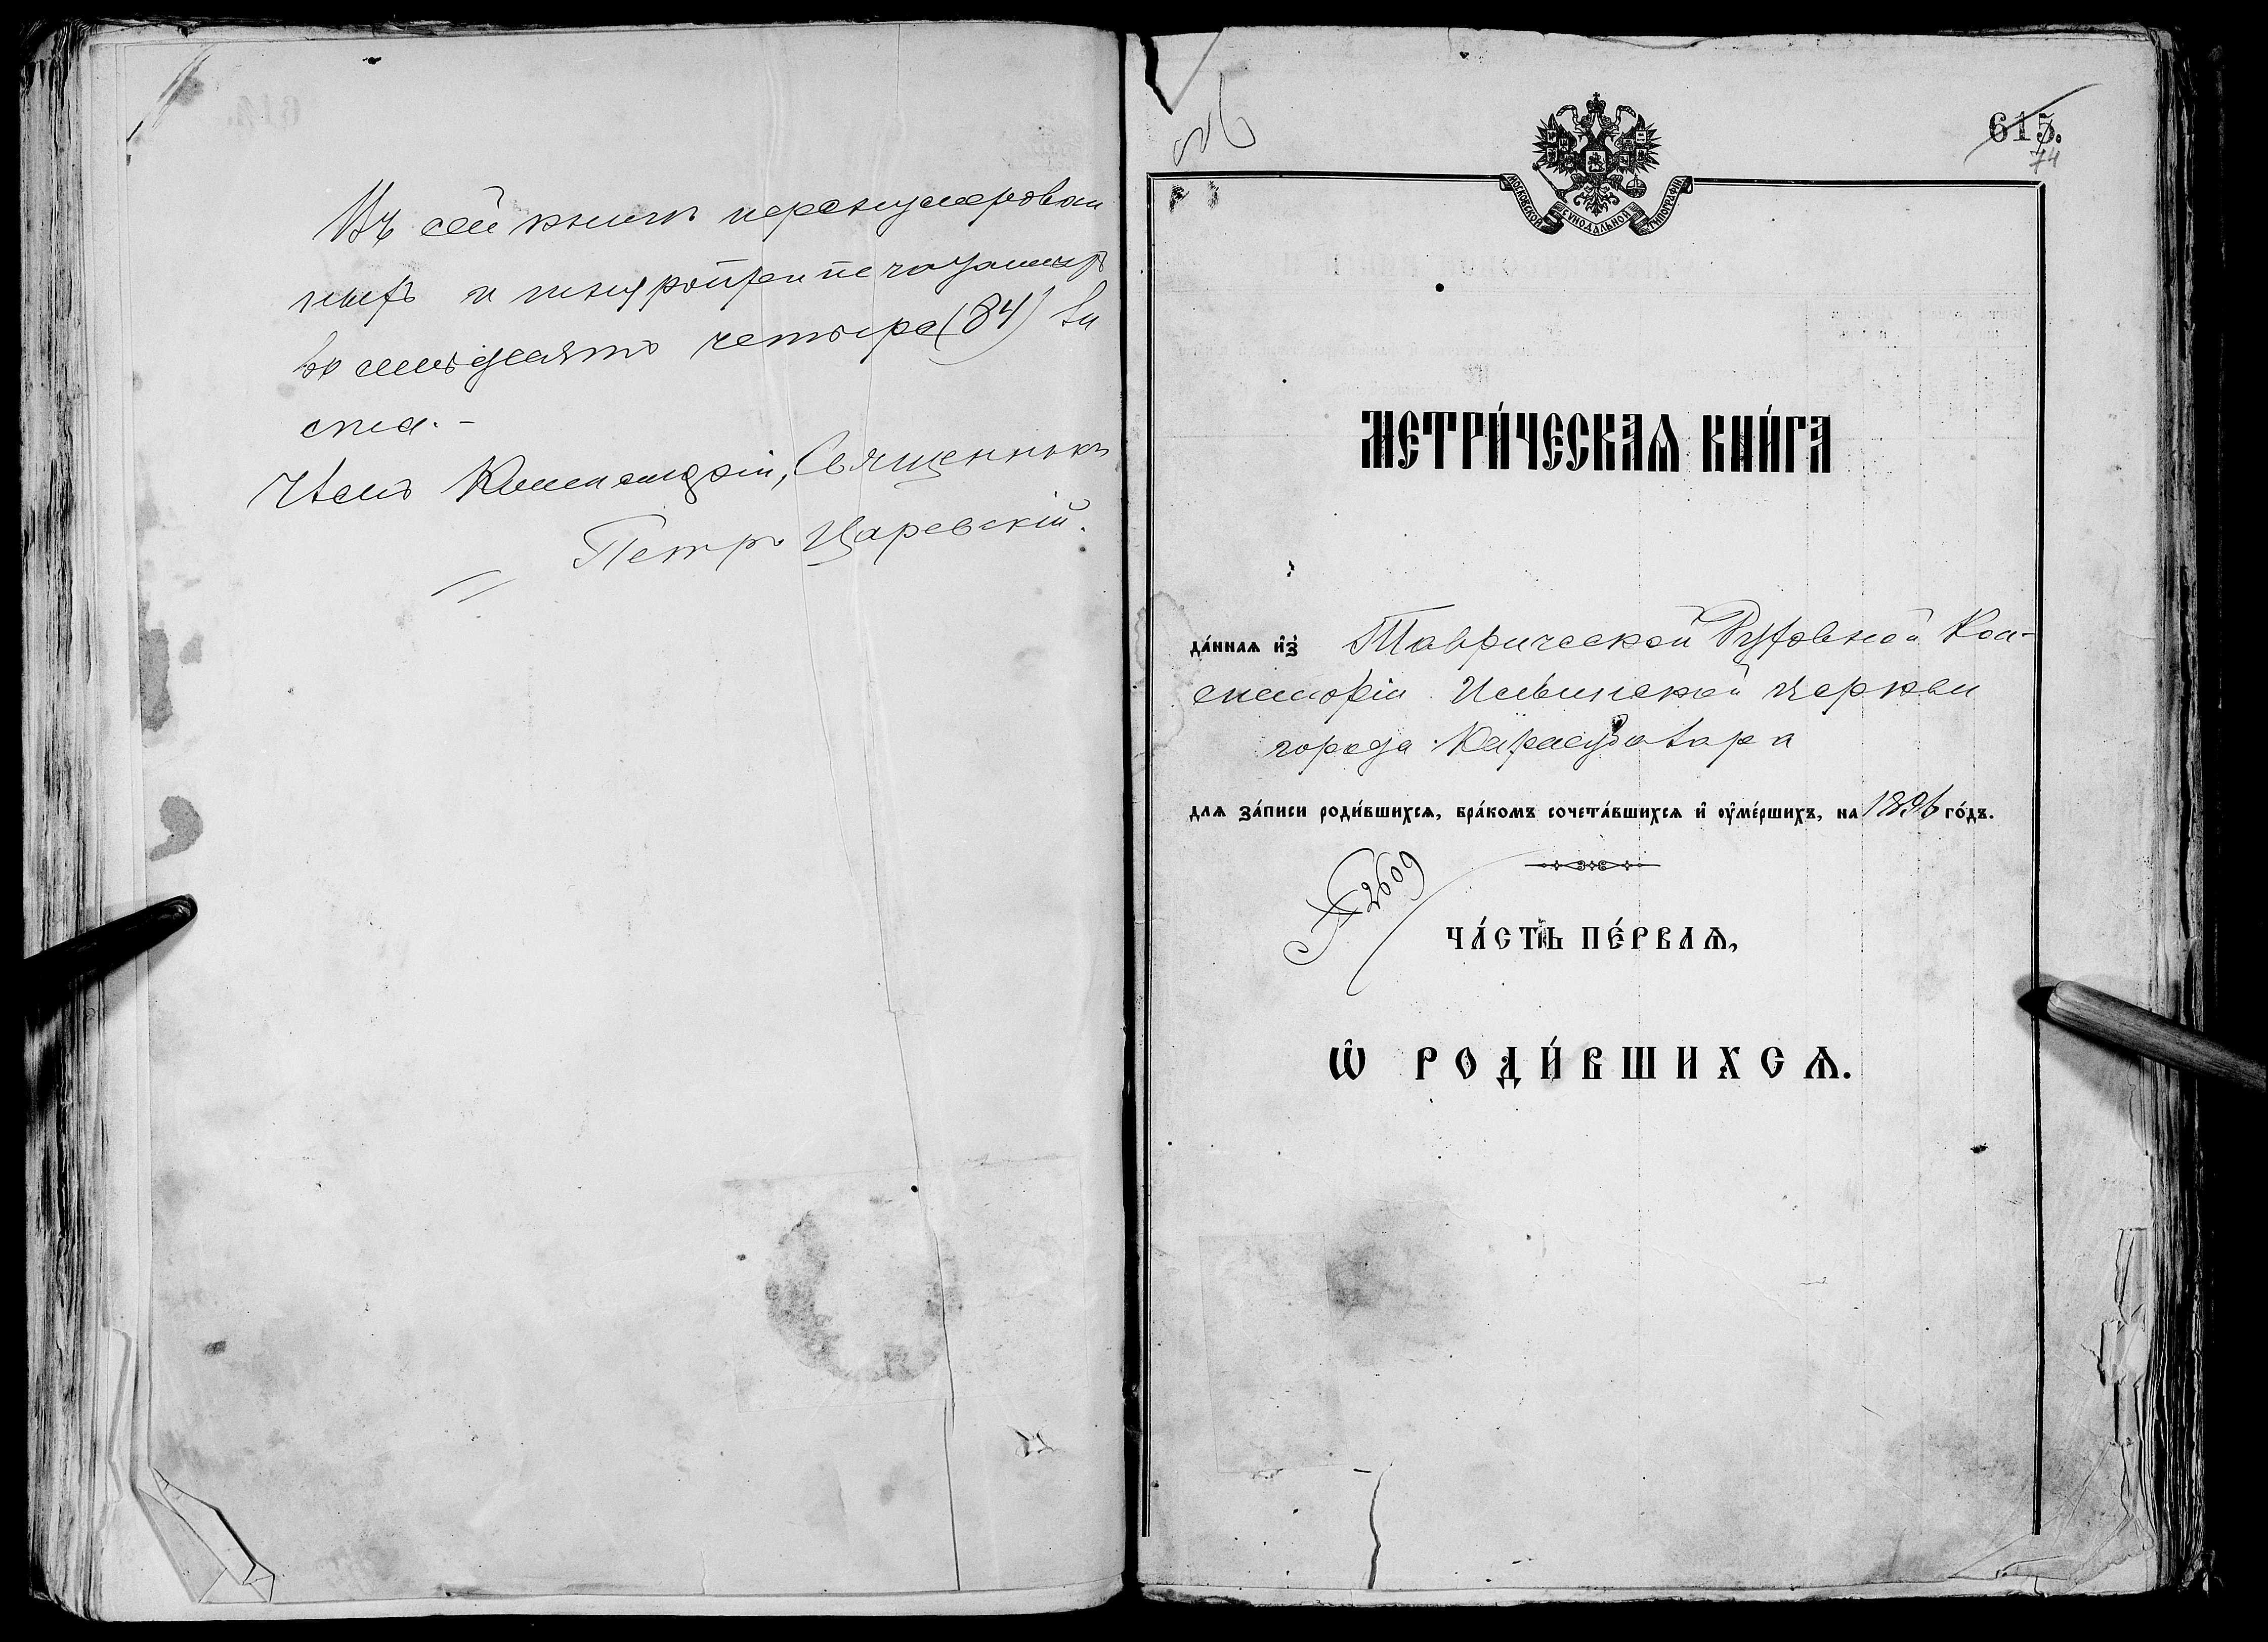 Въ сей книгѣ перенумерован
ныхъ и шнуропрепечатанныхъ
восемьдесятъ четыре (84) ли
ста. -
Членъ Консисторіи, Священникъ
Петръ Царевскій.
36
615.
74
МОСКОВСКОЙ СѴНОДАЛЬНОЙ ТИПОГРАФІИ
МЕТРИ́ЧЕСКАѦ КНИ́ГА
да́ннаѧ и҆з̾ Таврической Духовной Кон-
систоріи Ильинской церкви
города Карасубазара
длѧ за́писи роди́вшихсѧ, бра́комъ сочета́вшихсѧ и҆ оу҆ме́ршихъ, на 1896 го́дъ.
№ 2609
ЧА́СТЬ ПЕ́РВАѦ,
Ѡ҆ РОДИ́ВШИХСѦ.